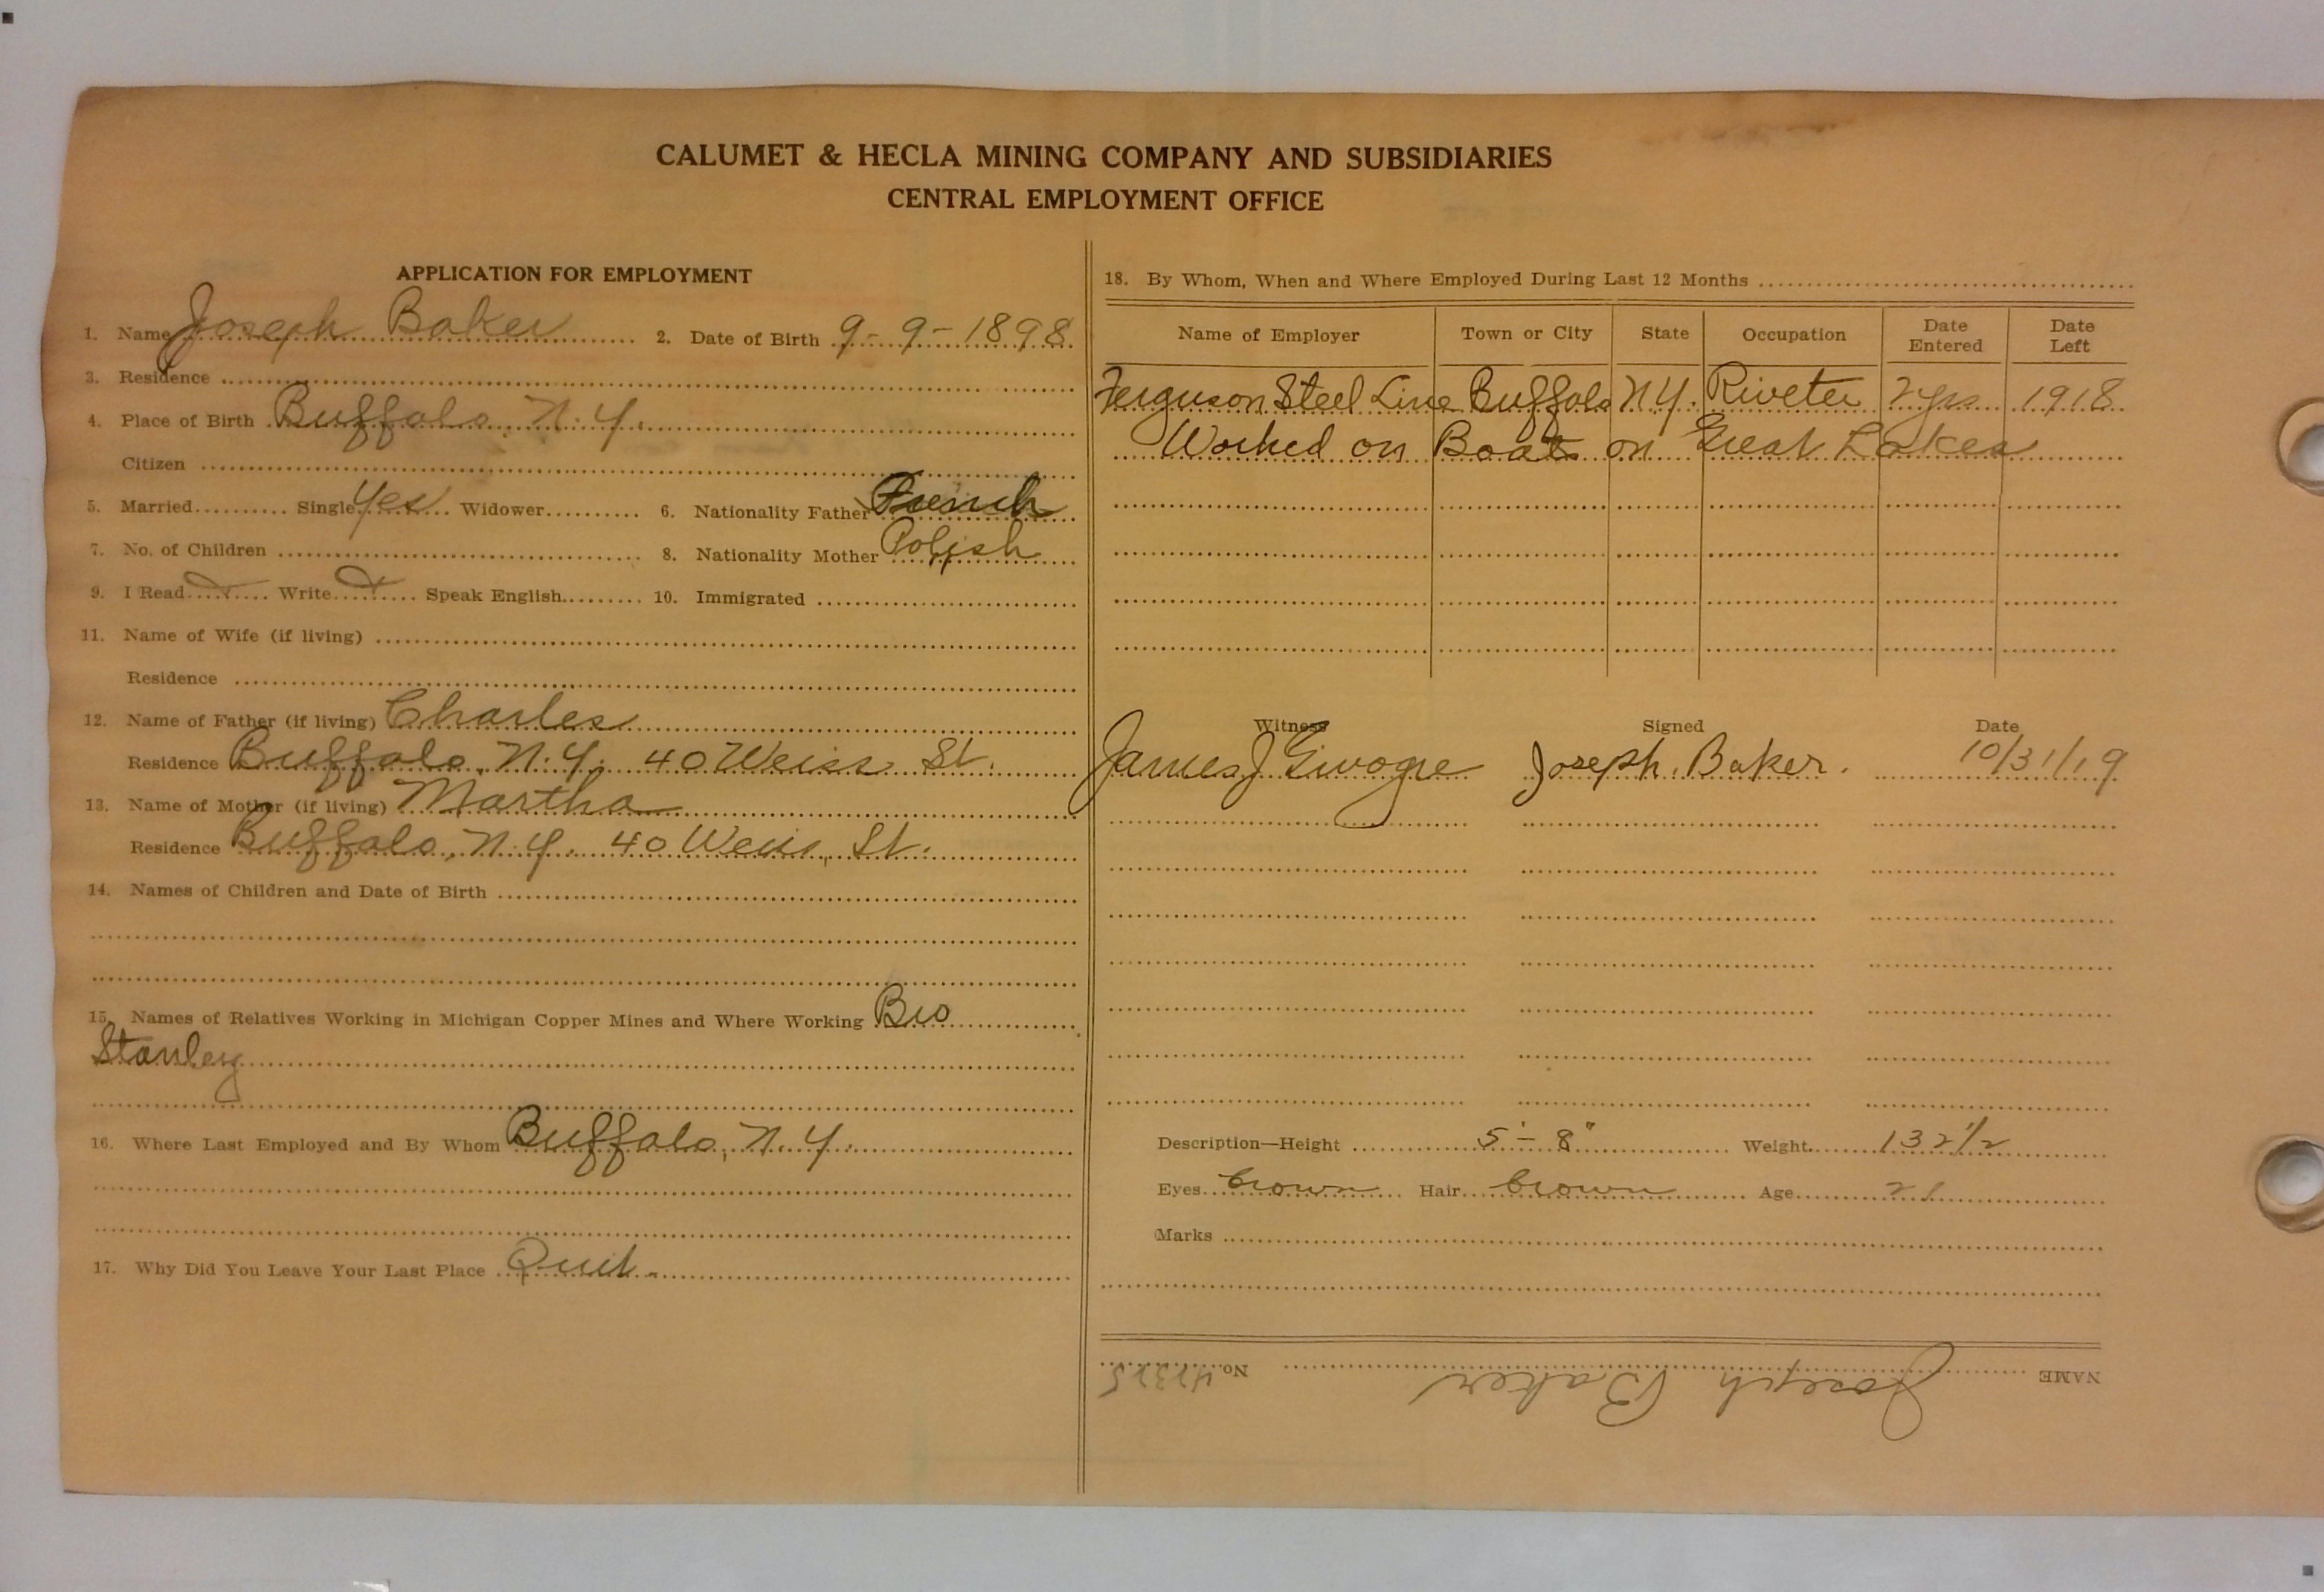 CALUMET & HECLA MINING COMPANY AND SUBSIDIARIES
CENTRAL EMPLOYMENT OFFICE
APPLICATION FOR EMPLOYMENT
1. Name Joseph Baker 2. Date of Birth 9-9-1898
3. Residence
4. Place of Birth Buffalo N.Y.
Citizen
5. Married Single Yes Widower 6. Nationality Father French
7. No. of Children 8. Nationality Mother Polish
9. I Read Write Speak English 10. Immigrated
11. Name of Wife (if living)
Residence
12. Name of Father (if living) Charles
Residence Buffalo, N.Y. 40 Weiss St.
13. Name of Mother (if living) Martha
Residence Buffalo, N.Y. 40 Weiss St.
14. Names of Children and Date of Birth
15. Names of Relatives Working in Michigan Copper Mines and Where Working Bro
Stanley
16. Where Last Employed and By Whom Buffalo, N.Y.
17. Why Did You Leave Your Last Place Quit
18. By Whom, When and Where Employed During Last 12 Months
Name of Employer Town or City State Occupation Date Entered Date Left
Ferguson Steel Line Buffalo N.Y. Riveter 2 yrs 1918
Worked on Boat on Great Lakes
Witness Signed Date
James J Joseph Baker. 10/31/19
Description—Height 5'-8" Weight 132 1/2
Eyes brown Hair brown Age 21
Marks
NAME Joseph Baker No. 42325